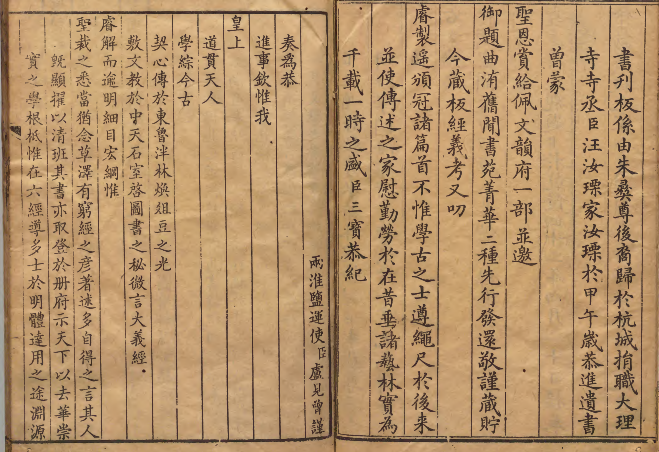 書刊板係由朱彝尊後裔歸於杭城捐職大理
寺寺丞臣汪汝瑮家汝瑮於甲午歲恭進遺書
曾蒙
聖恩賞給佩文韻府一部並邀
御題曲洧舊聞書苑菁華二種先行發還敬謹藏貯
今藏板經義考又叨
睿製遥頒冠諸篇首不惟學古之士遵繩尺於後來
並使傳述之家慰勤勞於在昔垂諸藝林實為
千載一時之盛臣三寶恭紀
兩淮鹽運使臣盧見曾謹
奏為恭
進事欽惟我
皇上
道貫天人
學綜今古
契心傳於東魯泮林煥俎豆之光
敷文教於中天石室啓圖書之秘微言大義經
睿解而逾明細目宏綱惟
聖裁之悉當猶念草澤有窮經之彦著述多自得之言其人
旣顯擢以清班其書亦取登於册府示天下以去華崇
實之學根柢惟在六經導多士於明體達用之途淵源